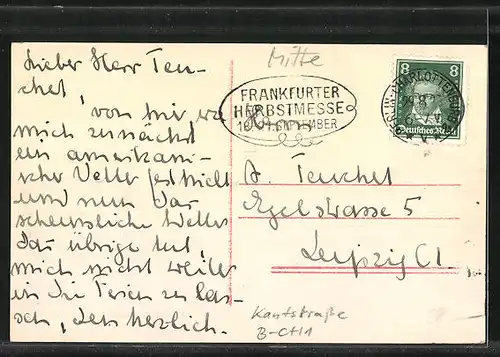 Lieber Herr Teu-
chert,
von mir
mich zunächst
ein amerikani-
scher Vetter festhielt
und nun das
scheussliche Wetter
das übrige tut,
mich nicht weiter
in die Ferien zu las-
sen, den herzlich.
Mitte
FRANKFURTER
HERBSTMESSE
SEPTEMBER
8 8
Deutsches Reich
BERLIN-CHARLOTTENBURG
A. Teuchert
Egelstrasse 5
Leipzig C1
Kantstraße
B-Ch1